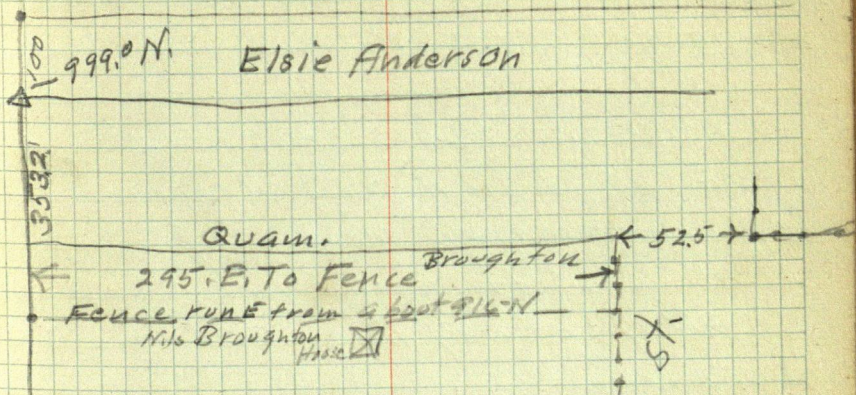 100
999.0 N.
Elsie Anderson
353.2'
Quam.
52.5
Broughton
295. E. To Fence
Fence run E from about 916-N
Nils Broughton
House